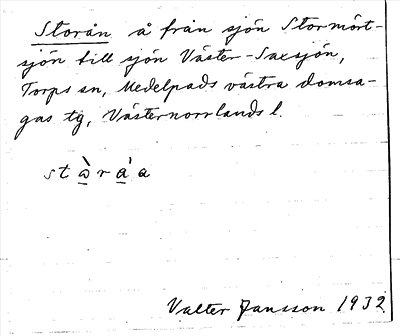 Storån å från sjön Stormört-
sjön till sjön Väster-Saxsjön,
Torps sn, Medelpads västra domsa-
gas tg, Västernorrlands l.
Valter Jansson 1932